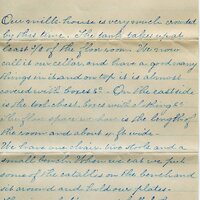 Our milk house is very much crowded
by this time. The tank takes up at
least 2/3 of the floor room. We now
call it our cellar and have a good many
things in it and on top it is almost
covered with boxes &c. On the east side
is the tool chest, boxes with clothing &c.
The floor space we have is the length of
the room and about 4 ft. wide.
We have one chair, two stools and a
small bench. When we eat we put
some of the eatables on the bench and
sit around and hold our plates.